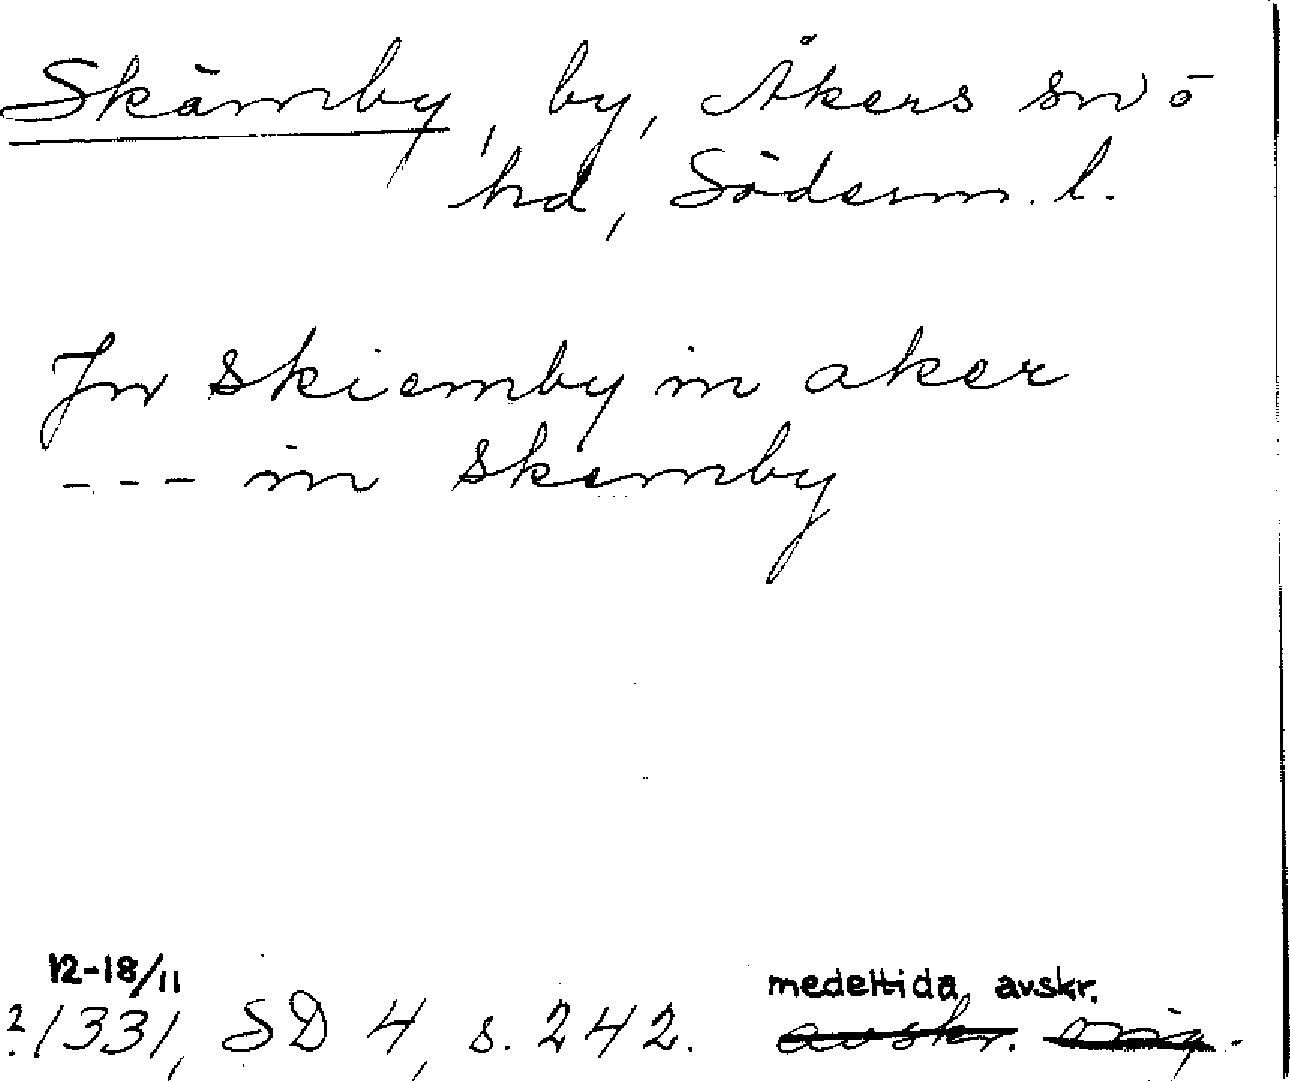 Skämby, by, Åkers sn o
hd, Söderm. l.
Jn skiemby in aker
--- in skemby
12-18/11 medeltida avskr.
? 1331, SD 4, s. 242. avskr. orig.